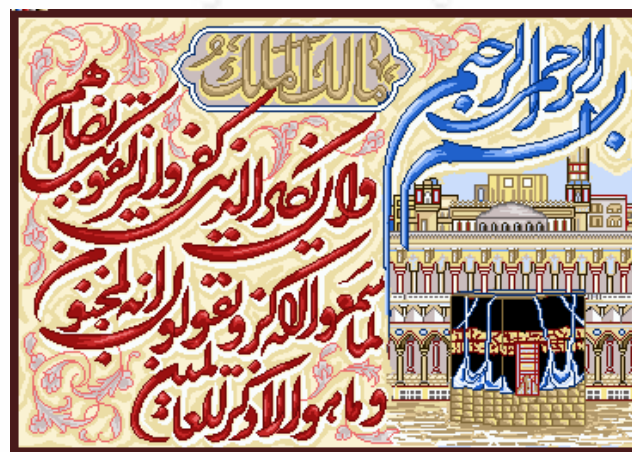 بسم الرحمن الرحيم
مالك الملك
وان يكاد الذين كفروا ليزلقونك بابصارهم
لما سمعوا الذكر و يقولون انه لمجنون
و ما هو الا ذكر للعالمين